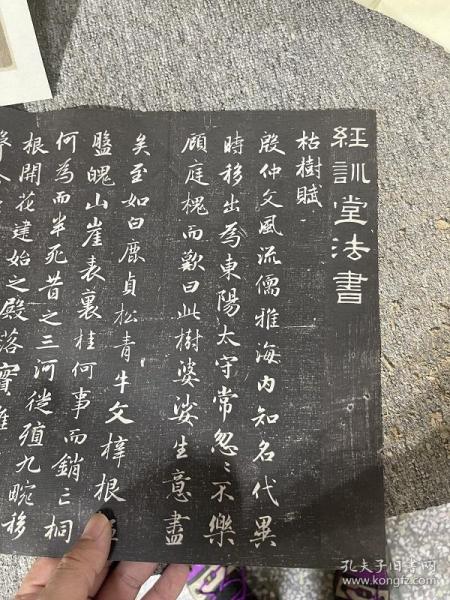 經訓堂法書
枯樹賦
殷仲文風流儒雅海内知名代異
時移出為東陽太守常忽〻不樂
顧庭槐而歎曰此樹婆娑生意盡
矣至如白鹿貞松青牛文梓根
盤魄山崖表裏桂何事而銷亡桐
何為而半死昔之三河徙殖九畹移
根開花建始之殿落實睢
孔夫子旧书网
www.kongfz.com